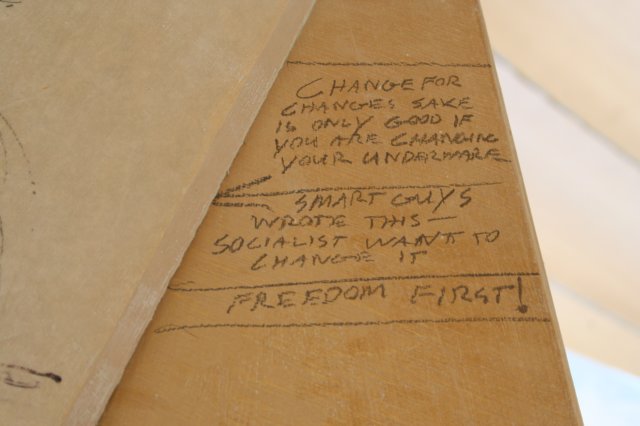 CHANGE FOR
CHANGES SAKE
IS ONLY GOOD IF
YOU ARE CHANGING
YOUR UNDERWARE
SMART GUYS
WROTE THIS —
SOCIALIST WANT TO
CHANGE IT
FREEDOM FIRST!